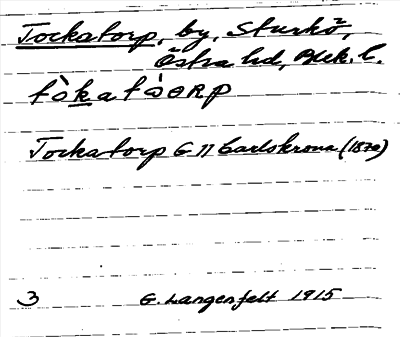 Tockatorp, by, Sturkö,
Östra hd, Blek. l.
tòkatòɵRp
Tockatorp G 11 Carlskrona (1870)
3 G. Langenfelt 1915